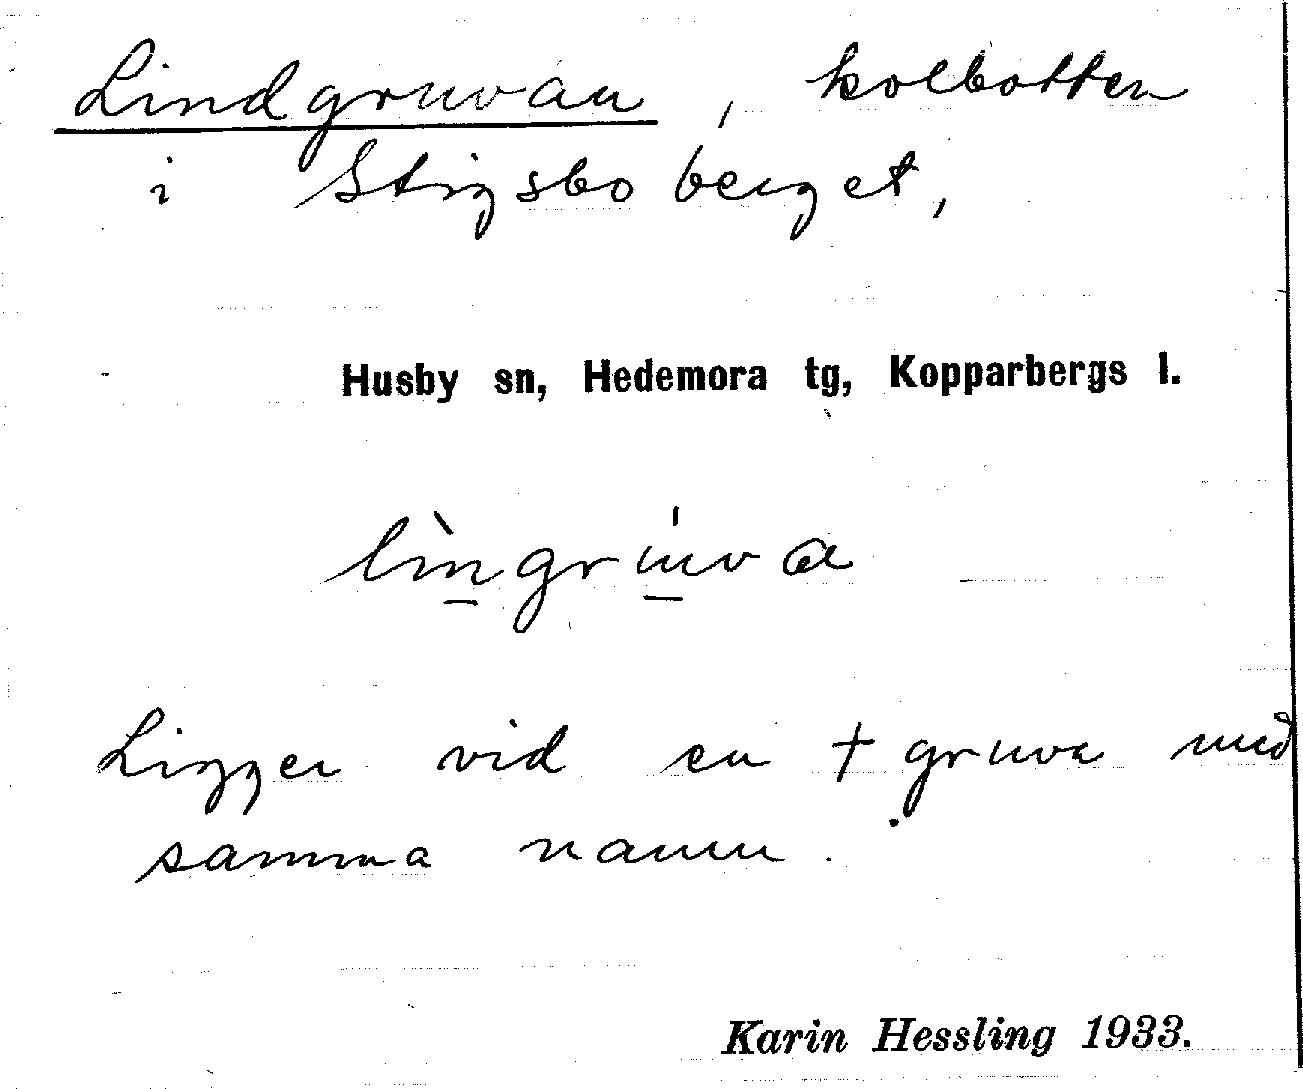 Lindgruvan, kolbotten
i Stigsboberget,
Husby sn, Hedemora tg, Kopparbergs l.
lìn̠grú̠va
Ligger vid en † gruva med
samma namn.
Karin Hessling 1933.